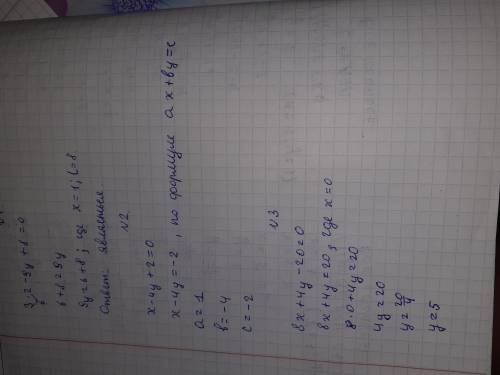 6+8=5y
5y=6+8; где x=1;
Ответ: является
N2
x-4y+2=0
x-4y=-2, по формуле ax+by=c
a=1
b=-4
c=-2
N3
8x+4y-20=0
8x+4y=20, где x=0
8·0+4y=20
4y=20
y=20/4
y=5